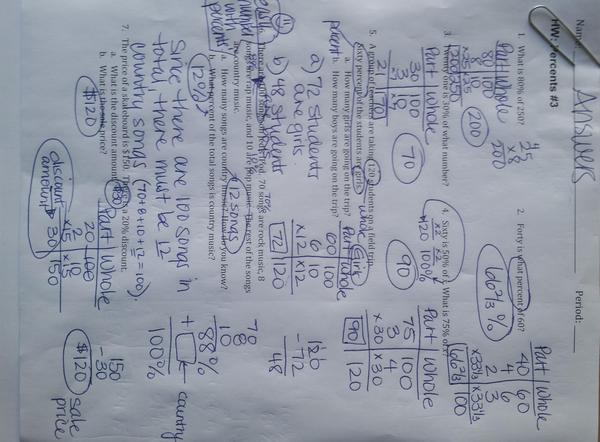 Name: Answers Period:
HW: Percents #3
1. What is 80% of 250?
Part Whole
80 100
8
×25 ×25
200 250
25
× 8
200
200
2. Forty is what percent of 60?
Part Whole
40 60
4 6
2 3
×33⅓ ×33⅓
66⅔ 100
66⅔ %
3. Twenty one is 30% of what number?
Part Whole
30 100
3 10
21 70
70
4. Sixty is 50% of x. What is 75% of x?
120 100%
Part Whole
75 100
3 4
×30 ×30
90 120
90
5. A group of teachers are taking 120 students on a field trip.
Sixty percent of the students are girls.
whole
percent
a. How many girls are going on the trip?
b. How many boys are going on the trip?
a) 72 students
are girls
b) 48 students
Girls
Part Whole
60 100
6 10
×12 ×12
72 120
120
-72
48
70 songs are rock music, 8
songs are rap music, and 10 are pop music. The rest of the songs
are country music.
70%
a. How many songs are country music? How do you know?
12 songs
b. What percent of the total songs is country music?
12%
Since there are 100 songs in
total there must be 12
country songs (70+8+10+12=100)
70
8
10
88%
+ country
100%
7. The price of a skateboard is $150. There is a 20% discount.
a. What is the discount amount?
$30
b. What is the sale price?
$120
Part Whole
20 100
2 10
×15 ×15
30 150
discount
amount
150
- 30
$120 sale
price